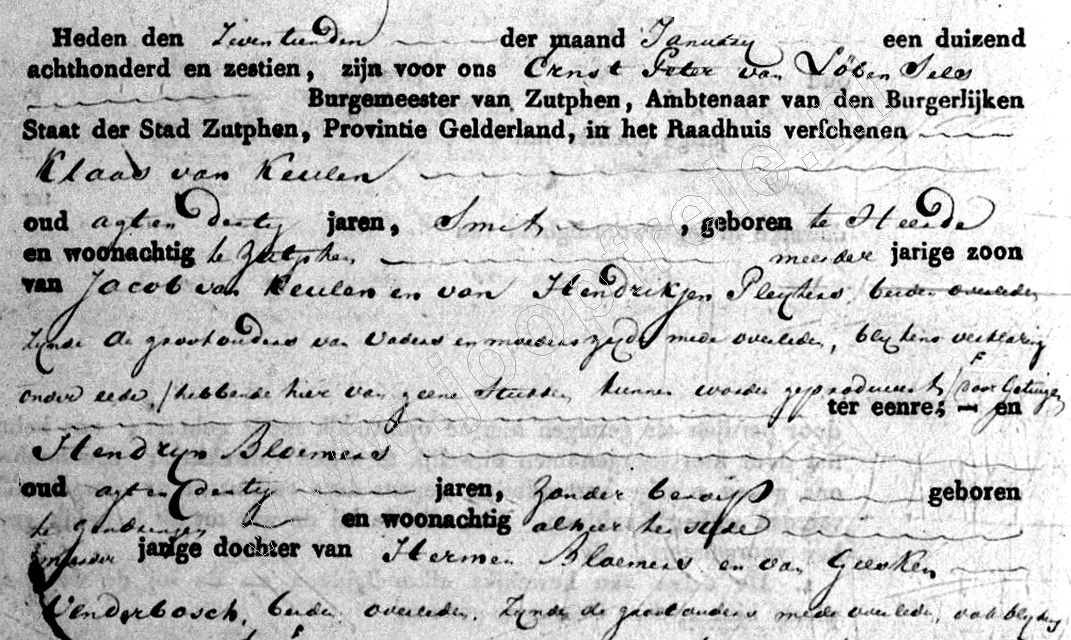 Heden den Zeventienden der maand January een duizend
achthonderd en zestien, zijn voor ons Ernst Peter van Löben Sels
Burgemeester van Zutphen, Ambtenaar van den Burgerlijken
Staat der Stad Zutphen, Provintie Gelderland, in het Raadhuis verschenen
Klaas van Keulen
oud agt en dertig jaren, Smit, geboren te Heerde
en woonachtig te Zutphen meerder jarige zoon
van Jacob van Keulen en van Hendrikjen Pleyters, beiden overleden
zynde de groothouders van vaders en moeders zyde mede overleden, blykens verklaring
onder eede, / hebbende hier van geene stukken kunnen worden geproduceerd / door Getuigen
ter eenre; en
Hendryn Bloemers
oud agt en dertig jaren, zonder beroep geboren
te Gendringen en woonachtig alhier ter stede
meerder jarige dochter van Hermen Bloemers en van Geesken
Venderbosch, beiden overleden, zynde de grootouders mede overleden,